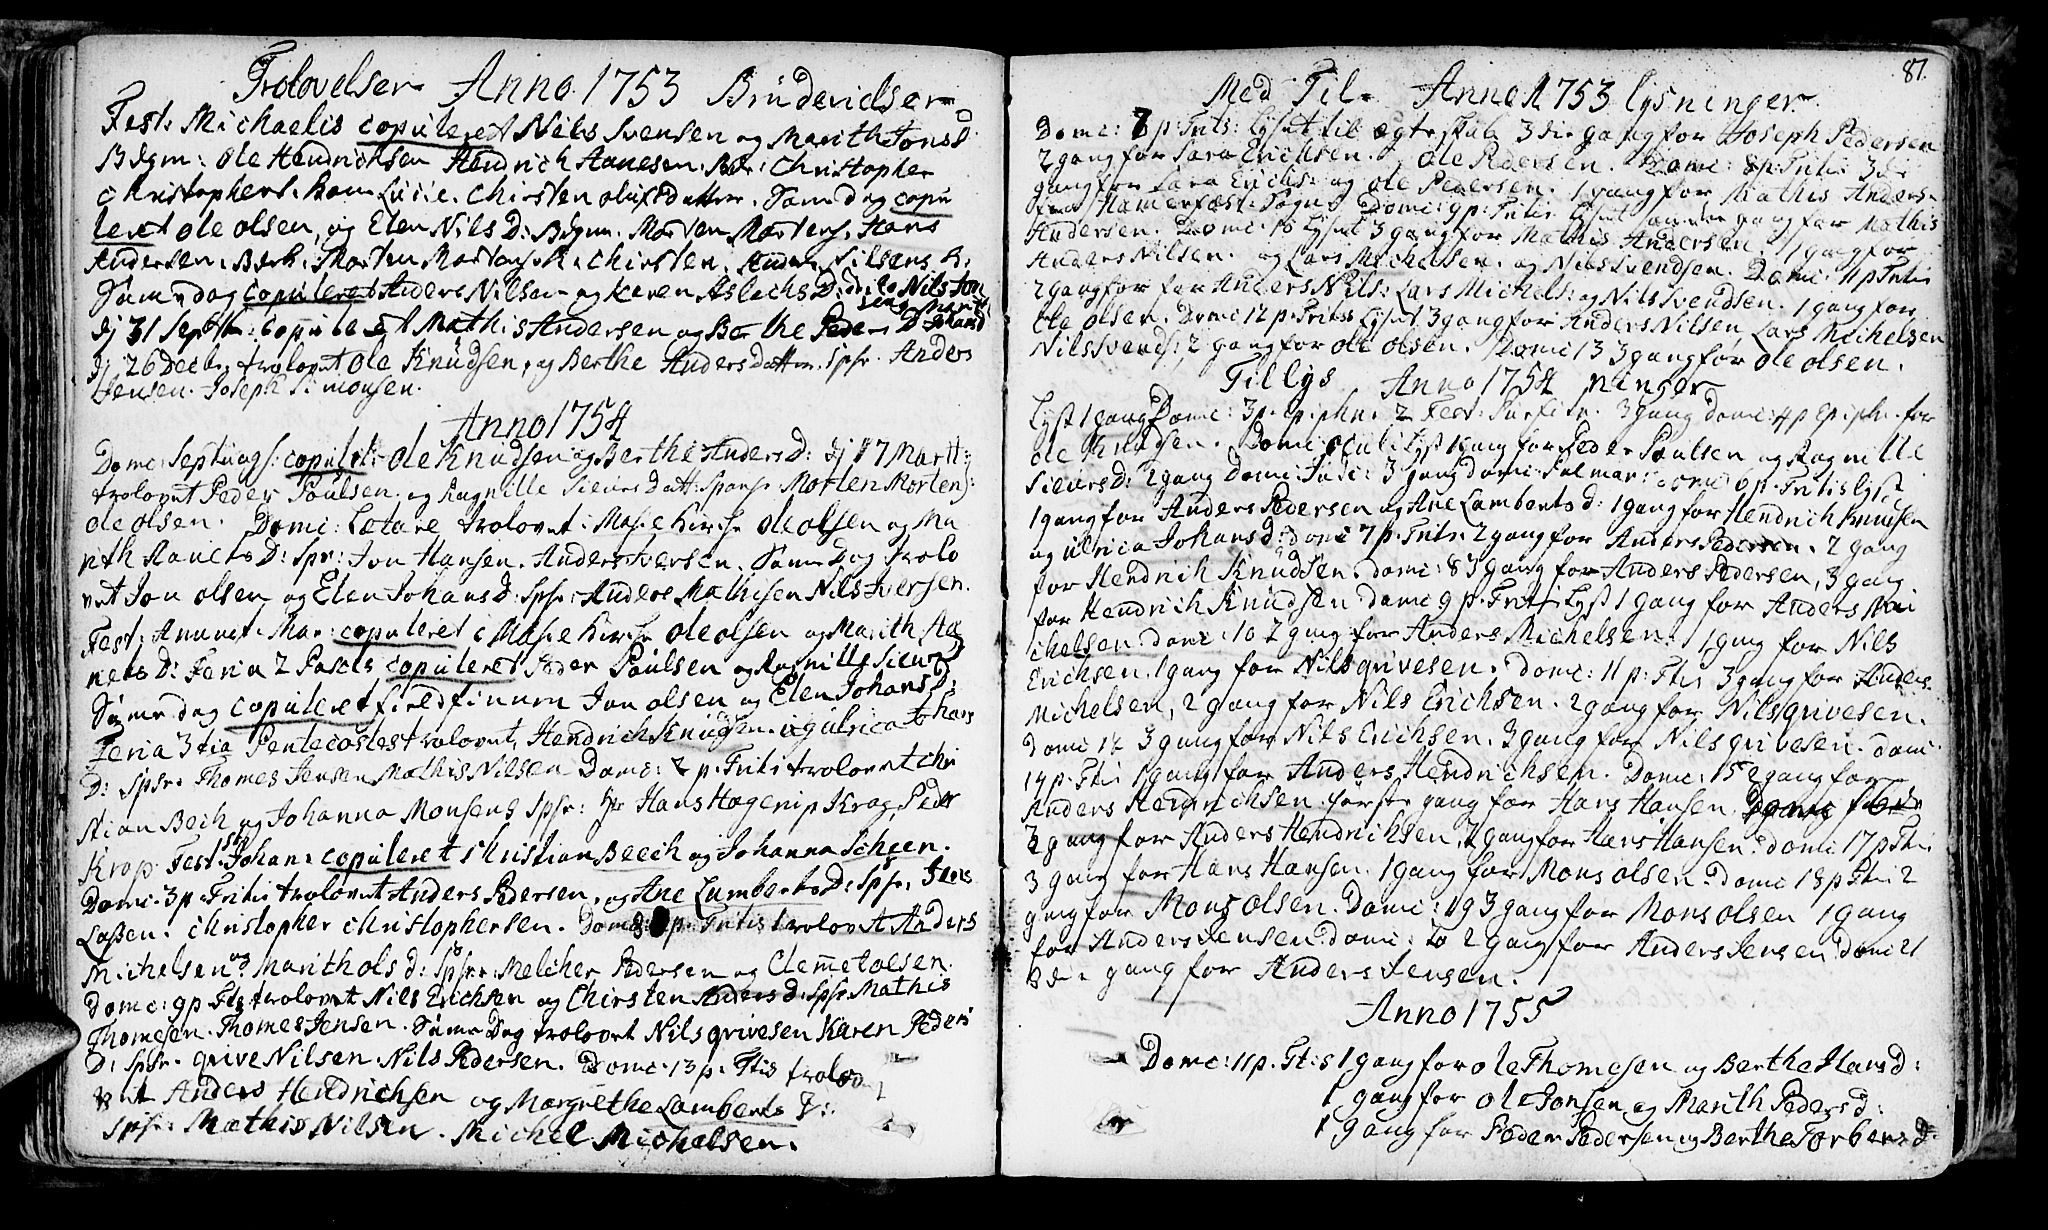 Trolovelser Anno 1753 Brüdevielser
Fest: Michaelis copuleret Nils Ivensen og Marith Jons D:
Bdgm: Ole Hendrichsen Hendrich Hansen. Bdr: Christopher
Christophers. Lucie. Chirsten olufsDatter. Same dag copu
leret ole olsen, og Elen Nils D: Bdgm. Morten Mortens. Hans
Andersen. Morten Mortens. Chirsten.
Same dag copuleret Anders Nilsen og Karen Aslachs D:
dj 31 Septbr: copuleret Mathis Andersen og Berthe Peders D:
dj 26 Decbr. trolovet Ole Knüdsen, og Berthe Andersdatter. Spsr. Anders
Jensen. Joseph Simonsen.
Anno 1754
Domc: Septuag: copulet: Ole Knudsen og Berthe Anders D: dj 17 Martt:
trolovet Peder Poulsen. og Ragnille Sieurs Datt: Spons: Morten Morten:
ole olsen. Domc: Letare trolovet i Masie Kirche Ole olsen og Ma
rith D: Spr: Jon Hansen. Anders Iversen. Same Dag trolo
vet Jon olsen og Elen Johans D: Spsr: Anders Mathisen Nils Iversen.
Fest: Annunt: Mar: copuleret i Masie Kirche ole olsen og Marith
D: Feria 2 Pascs copuleret Peder Poulsen og Ragnille Sieurs
Same dag copuleret Jon olsen og Elen Johans D:
Feria 3tia Pentecostes trolovet, Hendrich Knudsen og ulrica Johans
D: Spsr. Thomes Jensen Mathis Nilsen Domc: 2 p. Trit: trolovet Chri
stian Bech og Johanna Monsens Spsr: Hr Hans Hagerup Krog, Peder
Krog. Fest: Johan: copuleret Christian Beech og Johanna Scheen.
Domc. 3 p. Tritis trolovet Anders Pedersen, og Ane Lumberts D: Spsr: Jens
Lassen. Christopher Christophersen. Domc: 8 p: Tritis trolovet Anders
Michelsen og Marith ols d: Spsr: Melcher Pedersen og Clemet olsen.
Domc: 9 p Tts trolovet Nils Erichsen og Chirsten Anders d: Spsr Mathis
Thomesen. Thomes Jensen. Same Dag trolovet Nils grivesen Karen Peders
D: Spsr. grive Nilsen. Nils Pedersen. Domc. 13 p. Ttis trolov
et Anders Hendrichsen og Margrethe Lamberts D:
Spsr: Mathis Nilsen. Michel Michelsen.
87.
Med Til- Anno 1753 lysninger
Domc: 7 p: Trits: lyset til egteskab 3die gang for Joseph Pedersen
2 gang for Sara Erichsen. Ole Pedersen. Domc: 8 p: Tritis: 3die
gang for Sara Erichs: og Ole Pedersen. 1 gang for Mathis Anders-
fra Hamerfest: Sogn. Domc: 9 p: Tritis lyset anden gang for Mathis
Andersen. Domc: 10 lyset 3 gang for Mathis Andersen. 1 gang for
Anders Nilsen. og Lars Michelsen. og Nils Svendsen. Domc: 11 p Tritis
2 gang for Anders Nils: Lars Michels: og Nils Svendsen. 1 gang for
Ole olsen. Domc 12 p. Tritis lyset 3 gang for Anders Nilsen, Lars Michelsen
Nils Svends: 2 gang for ole olsen. Domc 13 3 gang for ole olsen.
Tillys Anno 1754 ninger
Lyst 1 gang Domc: 3 p. epiphn: 2 Fest: Purific. 3 gang Domc: 4 p Epiph: for
ole Knudsen. Domc oculi lyst 1 gang for Peder Poulsen og Ragnille
Sieurs D: 2 gang Domc. Judic: 3 gang domc: Palmar: domc 6 p. Tritis lyst
1 gang for Anders Pedersen og Ane Lamberts d: 1 gang for Hendrich Knudsen
og ulrica Johans d: domc 7 p. Trit: 2 gang for Anders Pedersen. 2 gang
for Hendrich Knudsen. domc: 8 3 gang for Anders Pedersen, 3 gang
for Hendrich Knüdsen domc 9 p. Tritis lyst 1 gang for Anders Mi
chelsen. domc: 10 2 gang for Anders Michelsen. 1 gang for Nils
Erichsen. 1 gang for Nils grivesen. domc: 11 p: Ttis 3 gang for Anders
Michelsen, 2 gang for Nils Erichsen. 2 gang for Nils grivesen.
Domc 12 3 gang for Nils Erichsen. 3 gang for Nils grivesen. domc
14 p. Ttis 1 gang for Anders Hendrichsen. Domc: 15 2 gang for
Anders Hendrichsen. første gang for Hans Hansen.
3 gang for Anders Hendrichsen, 2 gang for Hans Hansen. domc 17 p Tti
3 gang for Hans Hansen. 1 gang for Mons olsen. domc 18 p Tti 2
gang for Mons olsen. Domc: 19 3 gang for Mons olsen 1 gang
for Anders Jensen domc: 20 2 gang for Anders Jensen domc 21
3die gang for Anders Jensen.
Anno 1755
Domc: 11 p. Tt:s 1 gang for ole Thomesen og Berthe Hans d:
1 gang for ole Jonsen og Marith Peders d:
1 gang for Peder Pedersen og Berthe Torbers d: